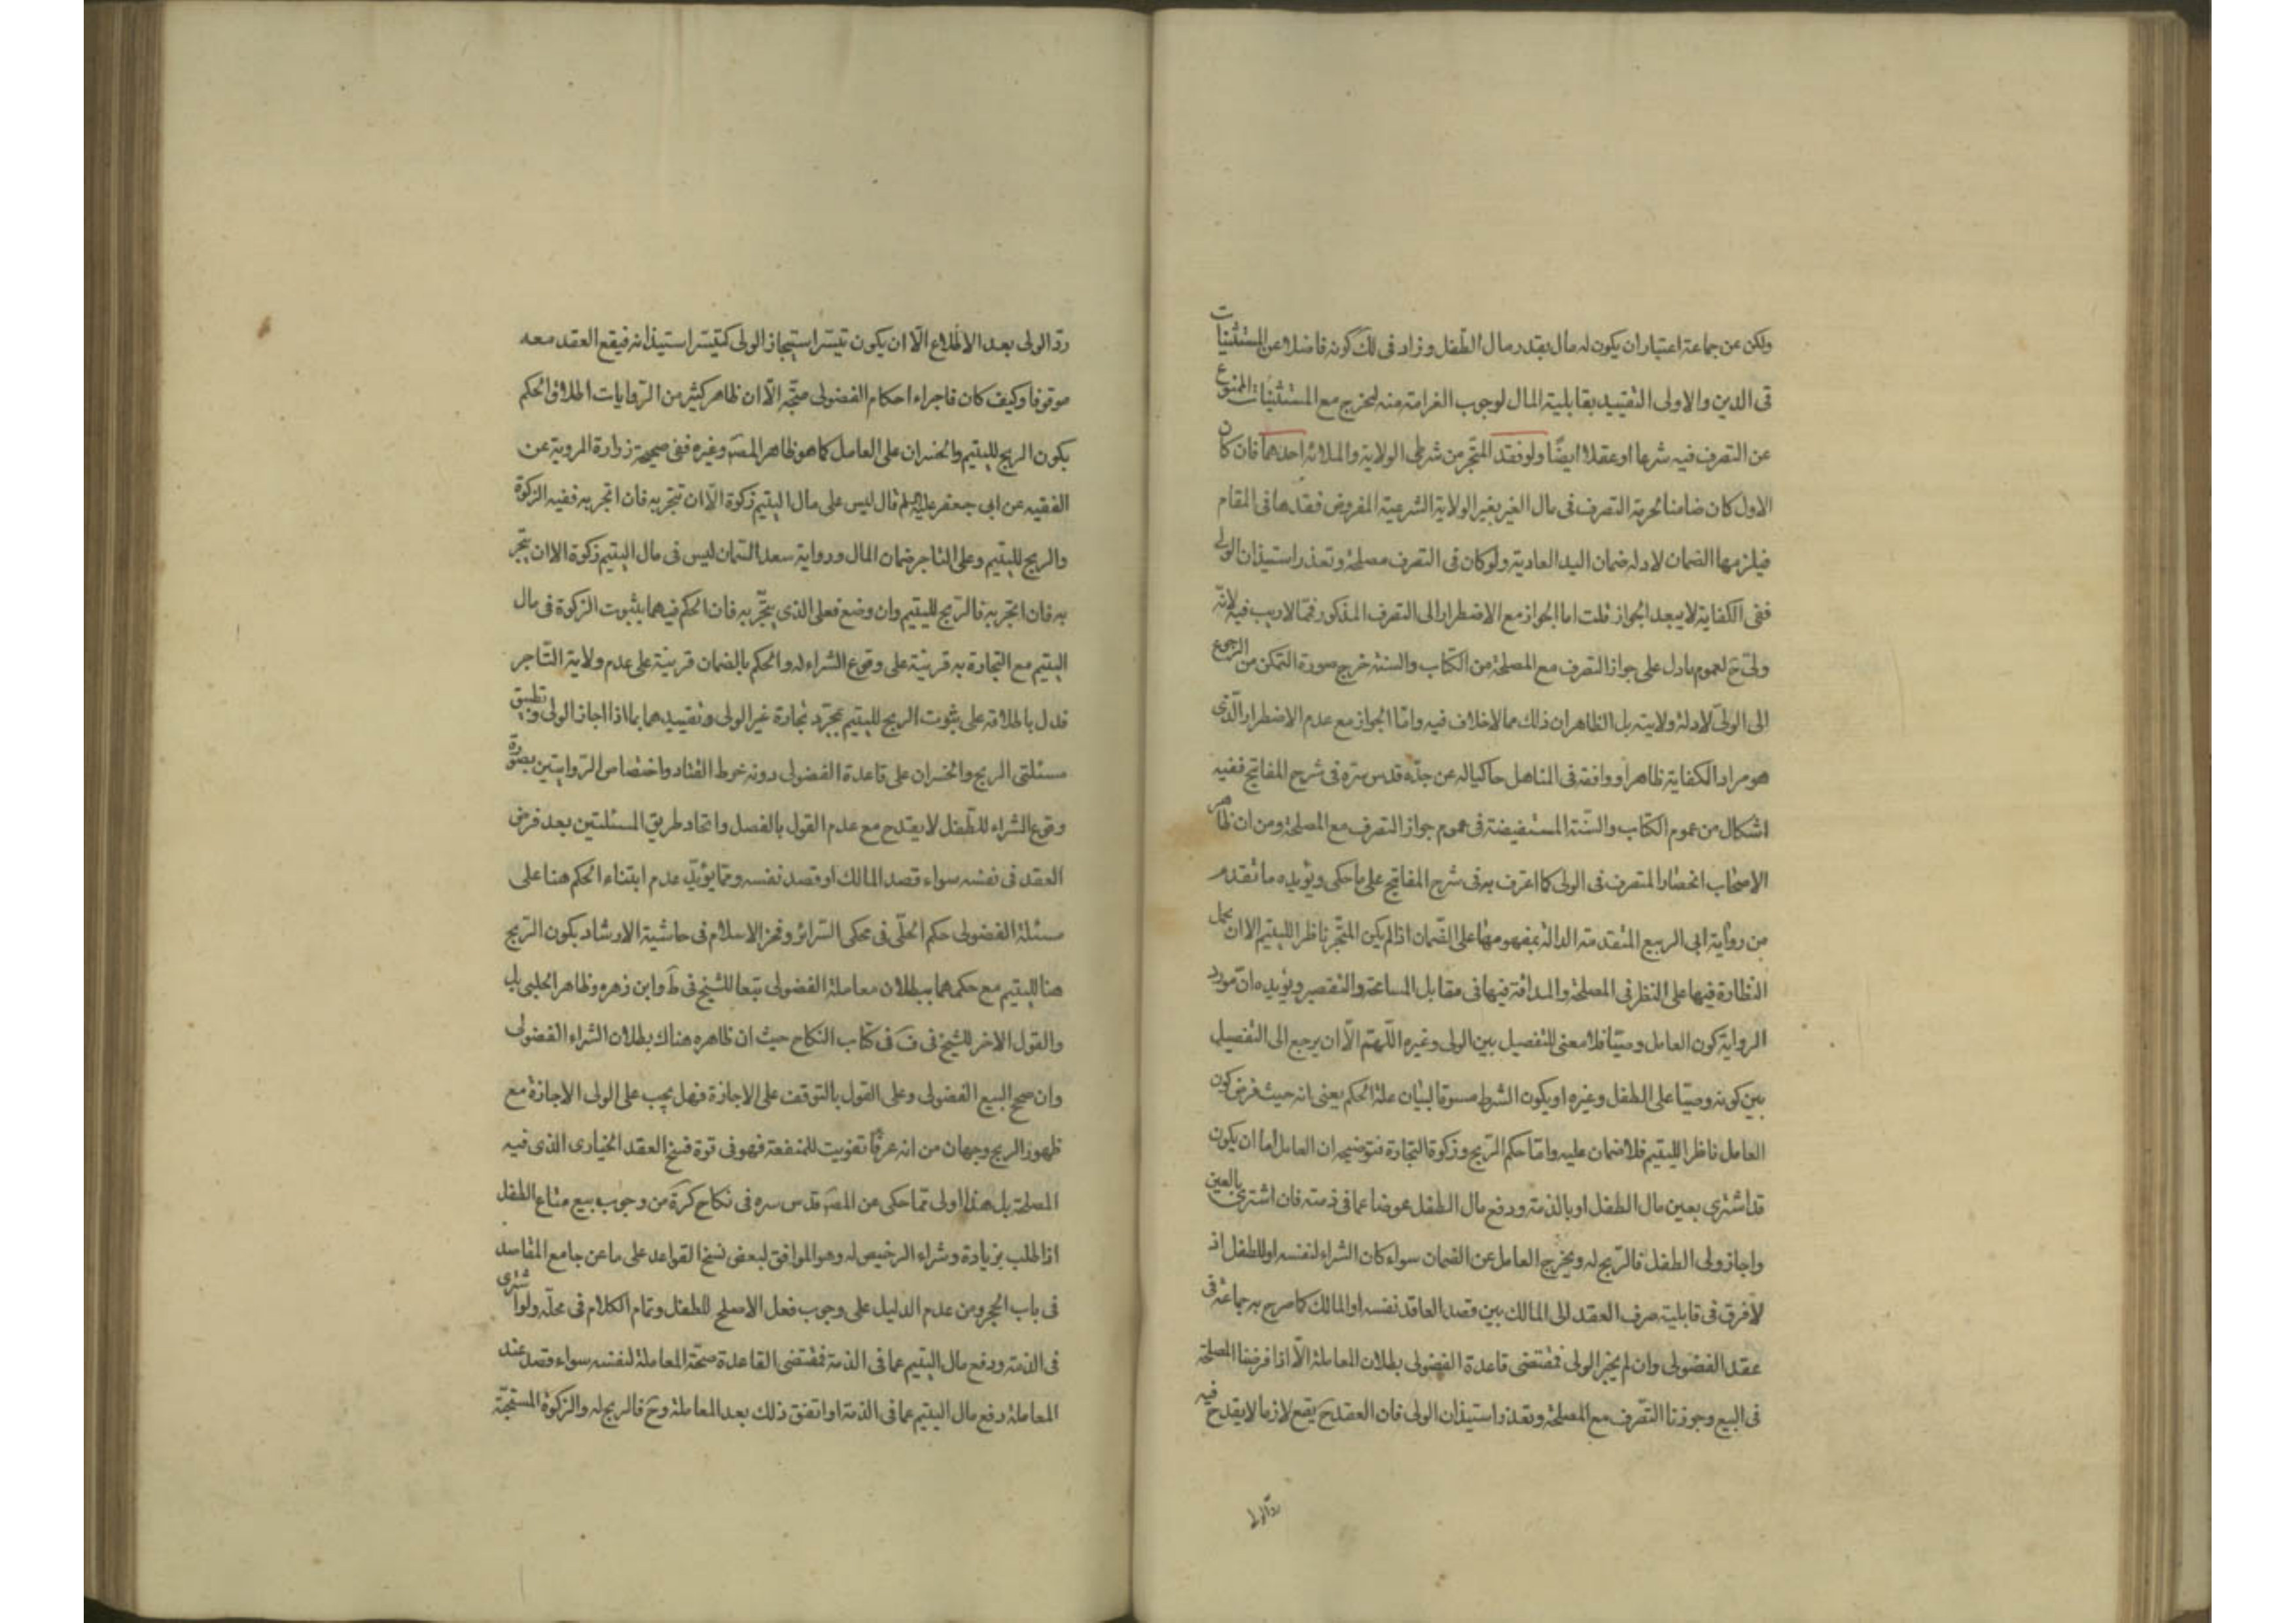 ولكن عن جماعة اعتبار ان يكون له مال بقدر مال الطفل وزاد فى لك كونه فاضلا عن المستثنيات
فى الدين والاولى التقييد بقابلية المال لوجوب الغرامة منه ليخرج مع المستثنيات الممنوع
عن التصرف فيه شرعا او عقلا ايضا ولو فقد المتجر من شرطى الولاية والملائة احدهما فان كان
الاول كان ضامنا لحرمة التصرف فى مال الغير بغير الولاية الشرعية المفروض فقدها فى المقام
فيلزمها الضمان لادلة ضمان اليد العادية ولو كان فى التصرف مصلحة وتعذر استيذان الولى
ففى الكفاية لا يبعد الجواز قلت اما الجواز مع الاضطرار الى التصرف المذكور فمما لا ريب فيه لانه
ولى ح لعموم ما دل على جواز التصرف مع المصلحة من الكتاب والسنة خرج صورة التمكن من الرجوع
الى الولى لادلة ولايته بل الظاهر ان ذلك مما لا خلاف فيه واما الجواز مع عدم الاضطرار الذى
هو مراد الكفاية ظاهرا ووافقه فى المناهل حاكيا له عن جده قدس سره فى شرح المفاتيح ففيه
اشكال من عموم الكتاب والسنة المستفيضة فى عموم جواز التصرف مع المصلحة ومن ان ظاهر
الاصحاب انحصار المتصرف فى الولى كما اعترف به فى شرح المفاتيح على ما حكى ويؤيده ما تقدم
من رواية ابى الربيع المتقدمة الدالة بمفهومها على الضمان اذا لم يكن المتجر ناظرا لليتيم الا ان يحمل
النظارة فيها على النظر فى المصلحة والمداقة فيها فى مقابل المسامحة والتقصير ويؤيده ان مورد
الرواية كون العامل وصيا فلا معنى للتفصيل بين الولى وغيره اللهم الا ان يرجع الى التفصيل
بين كونه وصيا على الطفل وغيره او يكون الشرط مسوقا لبيان علة الحكم يعنى انه حيث فرض كون
العامل ناظرا لليتيم فلا ضمان عليه واما حكم الربح وزكوة التجارة فتوضيحه ان العامل اما ان يكون
قد اشترى بعين مال الطفل او بالذمة ودفع مال الطفل عوضا عما فى ذمته فان اشترى بالعين
واجاز ولى الطفل فالربح له ويخرج العامل عن الضمان سواء كان الشراء لنفسه او للطفل اذ
لا فرق فى قابلية صرف العقد الى المالك بين قصد العاقد نفسه او المالك كما صرح به جماعة فى
عقد الفضولى وان لم يجز الولى فمقتضى قاعدة الفضولى بطلان المعاملة الا اذا فرضنا المصلحة
فى البيع وجوزنا التصرف مع المصلحة وتعذر استيذان الولى فان العقد ح يقع لازما لا يقدح فيه
رد الولى
رد الولى بعد الاطلاع الا ان يكون تيسر استيجاز الولى كتيسر استيذانه فيقع العقد معه
موقوفا وكيف كان فاجراء احكام الفضولى متجه الا ان ظاهر كثير من الروايات اطلاق الحكم
بكون الربح لليتيم والخسران على العامل كما هو ظاهر المص وغيره ففى صحيحة زرارة المروية عن
الفقيه عن ابى جعفر عليه السلم قال ليس على مال اليتيم زكوة الا ان تتجر به فان اتجر به ففيه الزكوة
والربح لليتيم وعلى التاجر ضمان المال ورواية سعد السمان ليس فى مال اليتيم زكوة الا ان يتجر
به فان اتجر به فالربح لليتيم وان وضع فعلى الذى يتجر به فان الحكم فيهما بثبوت الزكوة فى مال
اليتيم مع التجارة به قرينة على وقوع الشراء له والحكم بالضمان قرينة على عدم ولاية التاجر
فدل باطلاقه على ثبوت الربح لليتيم بمجرد تجارة غير الولى وتقييدهما بما اذا اجاز الولى وتطبيق
مسئلتى الربح والخسران على قاعدة الفضولى دونه خرط القتاد واختصاص الروايتين بصورة
وقوع الشراء للطفل لا يقدح مع عدم القول بالفصل واتحاد طريق المسئلتين بعد فرض
العقد فى نفسه سواء قصد المالك او قصد نفسه ومما يؤيد عدم ابتناء الحكم هنا على
مسئلة الفضولى حكم الحلى فى محكى السرائر وفخر الاسلام فى حاشية الارشاد بكون الربح
هنا لليتيم مع حكمهما ببطلان معاملة الفضولى تبعا للشيخ فى ط وابن زهره وظاهر الحلبى بل
والقول الاخر للشيخ فى ف فى كتاب النكاح حيث ان ظاهره هناك بطلان الشراء الفضولى
وان صح البيع الفضولى وعلى القول بالتوقف على الاجازة فهل يجب على الولى الاجازة مع
ظهور الربح وجهان من انه عرفا تفويت للمنفعة فهو فى قوة فسخ العقد الخيارى الذى فيه
المصلحة بل هذا اولى مما حكى عن المص قدس سره فى نكاح كرة من وجوب بيع متاع الطفل
اذا طلب بزيادة وشراء الرخيص له وهو الموافق لبعض نسخ القواعد على ما عن جامع المقاصد
فى باب الحجر ومن عدم الدليل على وجوب فعل الاصلح للطفل وتمام الكلام فى محله ولو اشترى
فى الذمة ودفع مال اليتيم عما فى الذمة فمقتضى القاعدة صحة المعاملة لنفسه سواء قصد عند
المعاملة دفع مال اليتيم عما فى الذمة او اتفق ذلك بعد المعاملة وح فالربح له والزكوة المستحبة